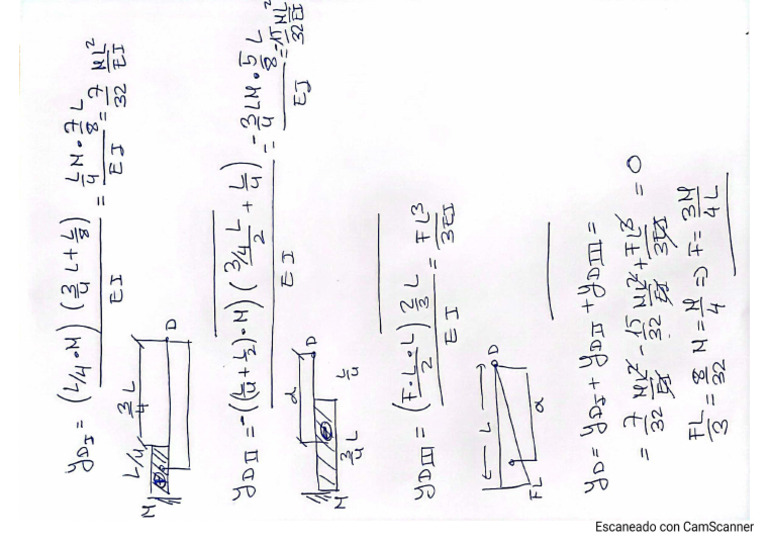 y_DI = (L/4 · M) (3/4 L + L/8) / EI = L/4 M · 7/8 L / EI = 7/32 ML²/EI
L/4 3/4 L
M D
y_DII = -((L/4 + L/2) · M) (3/4 L / 2 + L/4) / EI = -3/4 LM · 5/8 L / EJ = -15/32 ML²/EI
α
D
M 3/4 L L/4
y_DIII = (F·L·L / 2) 2/3 L / EI = FL3/3EI
L
D
FL α
y_D = y_DI + y_DII + y_DIII =
= 7/32 ML²/EI - 15/32 ML²/EI + FL3/3EI = 0
FL/3 = 8/32 M = M/4 => F = 3M/4L
Escaneado con CamScanner